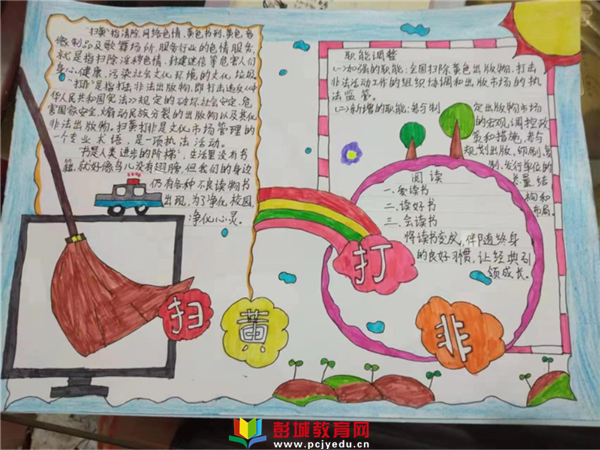 "扫黄"指清除网络色情、黄色书刊、黄色音
像制品及歌舞场所、服务行业的色情服务,
就是指扫除淫秽色情、封建迷信等危害人们
身心健康、污染社会文化环境的文化垃圾
"打非"是指打击非法出版物,即打击违反《中
华人民共和国宪法》规定的破坏社会安定,危
害国家安全、煽动民族分裂的出版物以及其他
非法出版物。扫黄打非是文化市场管理的
一个专业术语,是一项执法活动。
"书是人类进步的阶梯",生活里没有书
籍,就好像鸟儿没有翅膀,但我们的身边
仍有各种不良读物书
出现,为了净化校园,
净化心灵。
职能调整
(一)加强的职能:全国扫除黄色出版物、打击
非法活动工作的组织协调和出版市场的执
法监管。
(二)新增的职能:参与制定出版物市场
的宏观调控政
策和措施,参与
规划出版、印刷、复
制、发行单位的
总量、结
构和
布局。
阅读
一、爱读书
二、读好书
三、会读书
将读书变成伴随终身
的良好习惯,让经典引
领成长。
扫
黄
打
非
彭城教育网
www.pcjyedu.cn